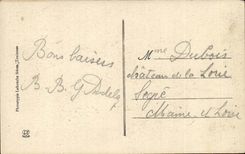 Phototypie Labouche frères, Toulouse
Bons baisers
B. B. G
Mme Dubois
château de la Loue
Segré
Maine et Loire